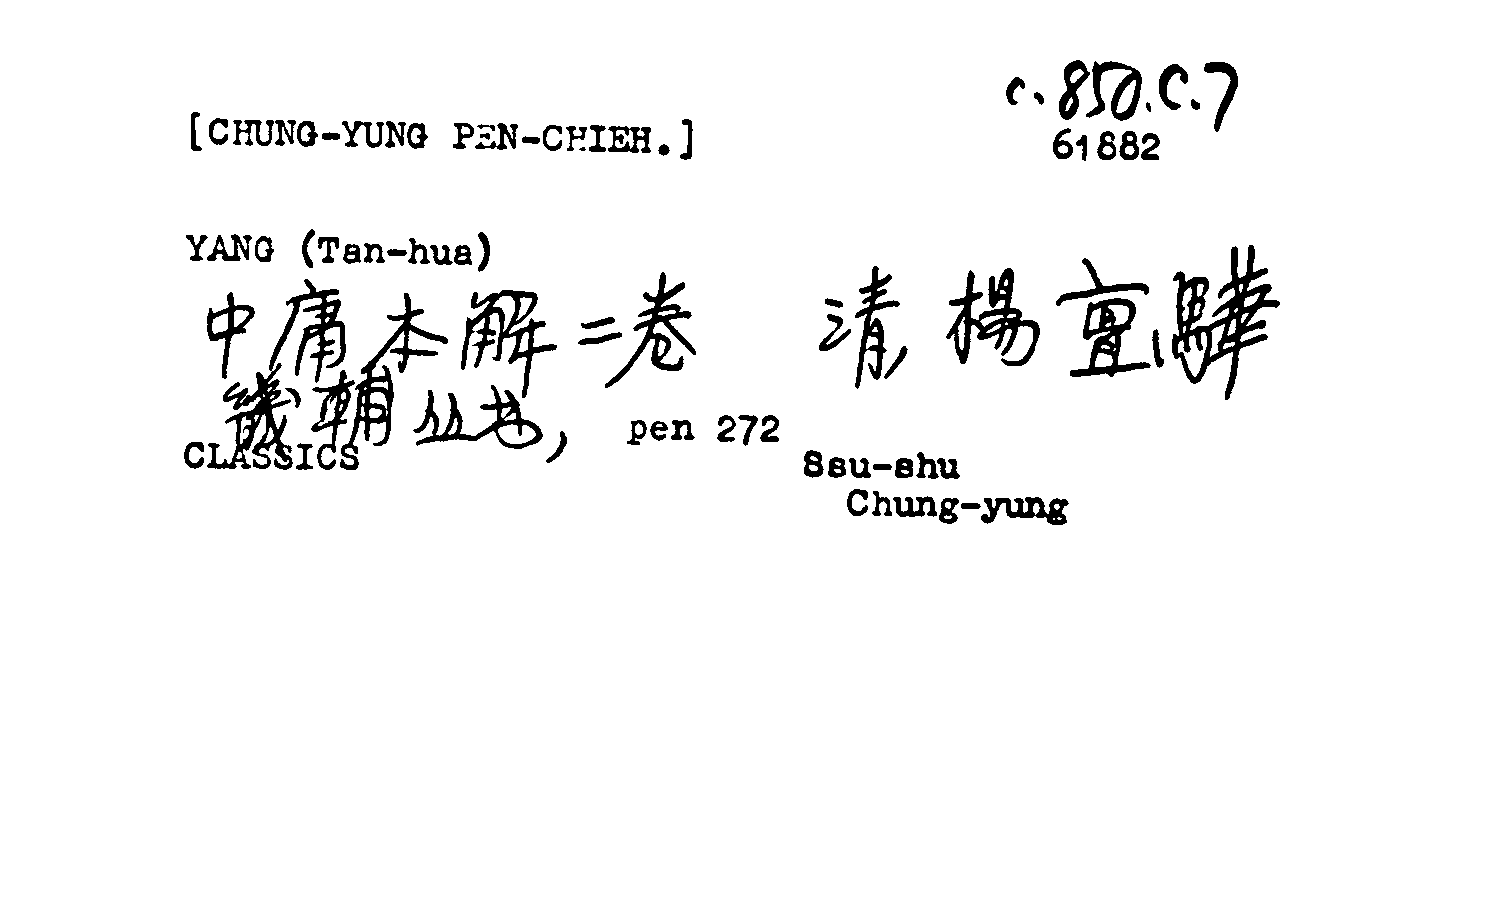 c.850.c.7
[CHUNG-YUNG PEN-CHIEH.]
61882
YANG (Tan-hua)
中庸本解二卷 清, 楊亶驊
畿輔丛书, pen 272
CLASSICS
Ssu-shu
Chung-yung